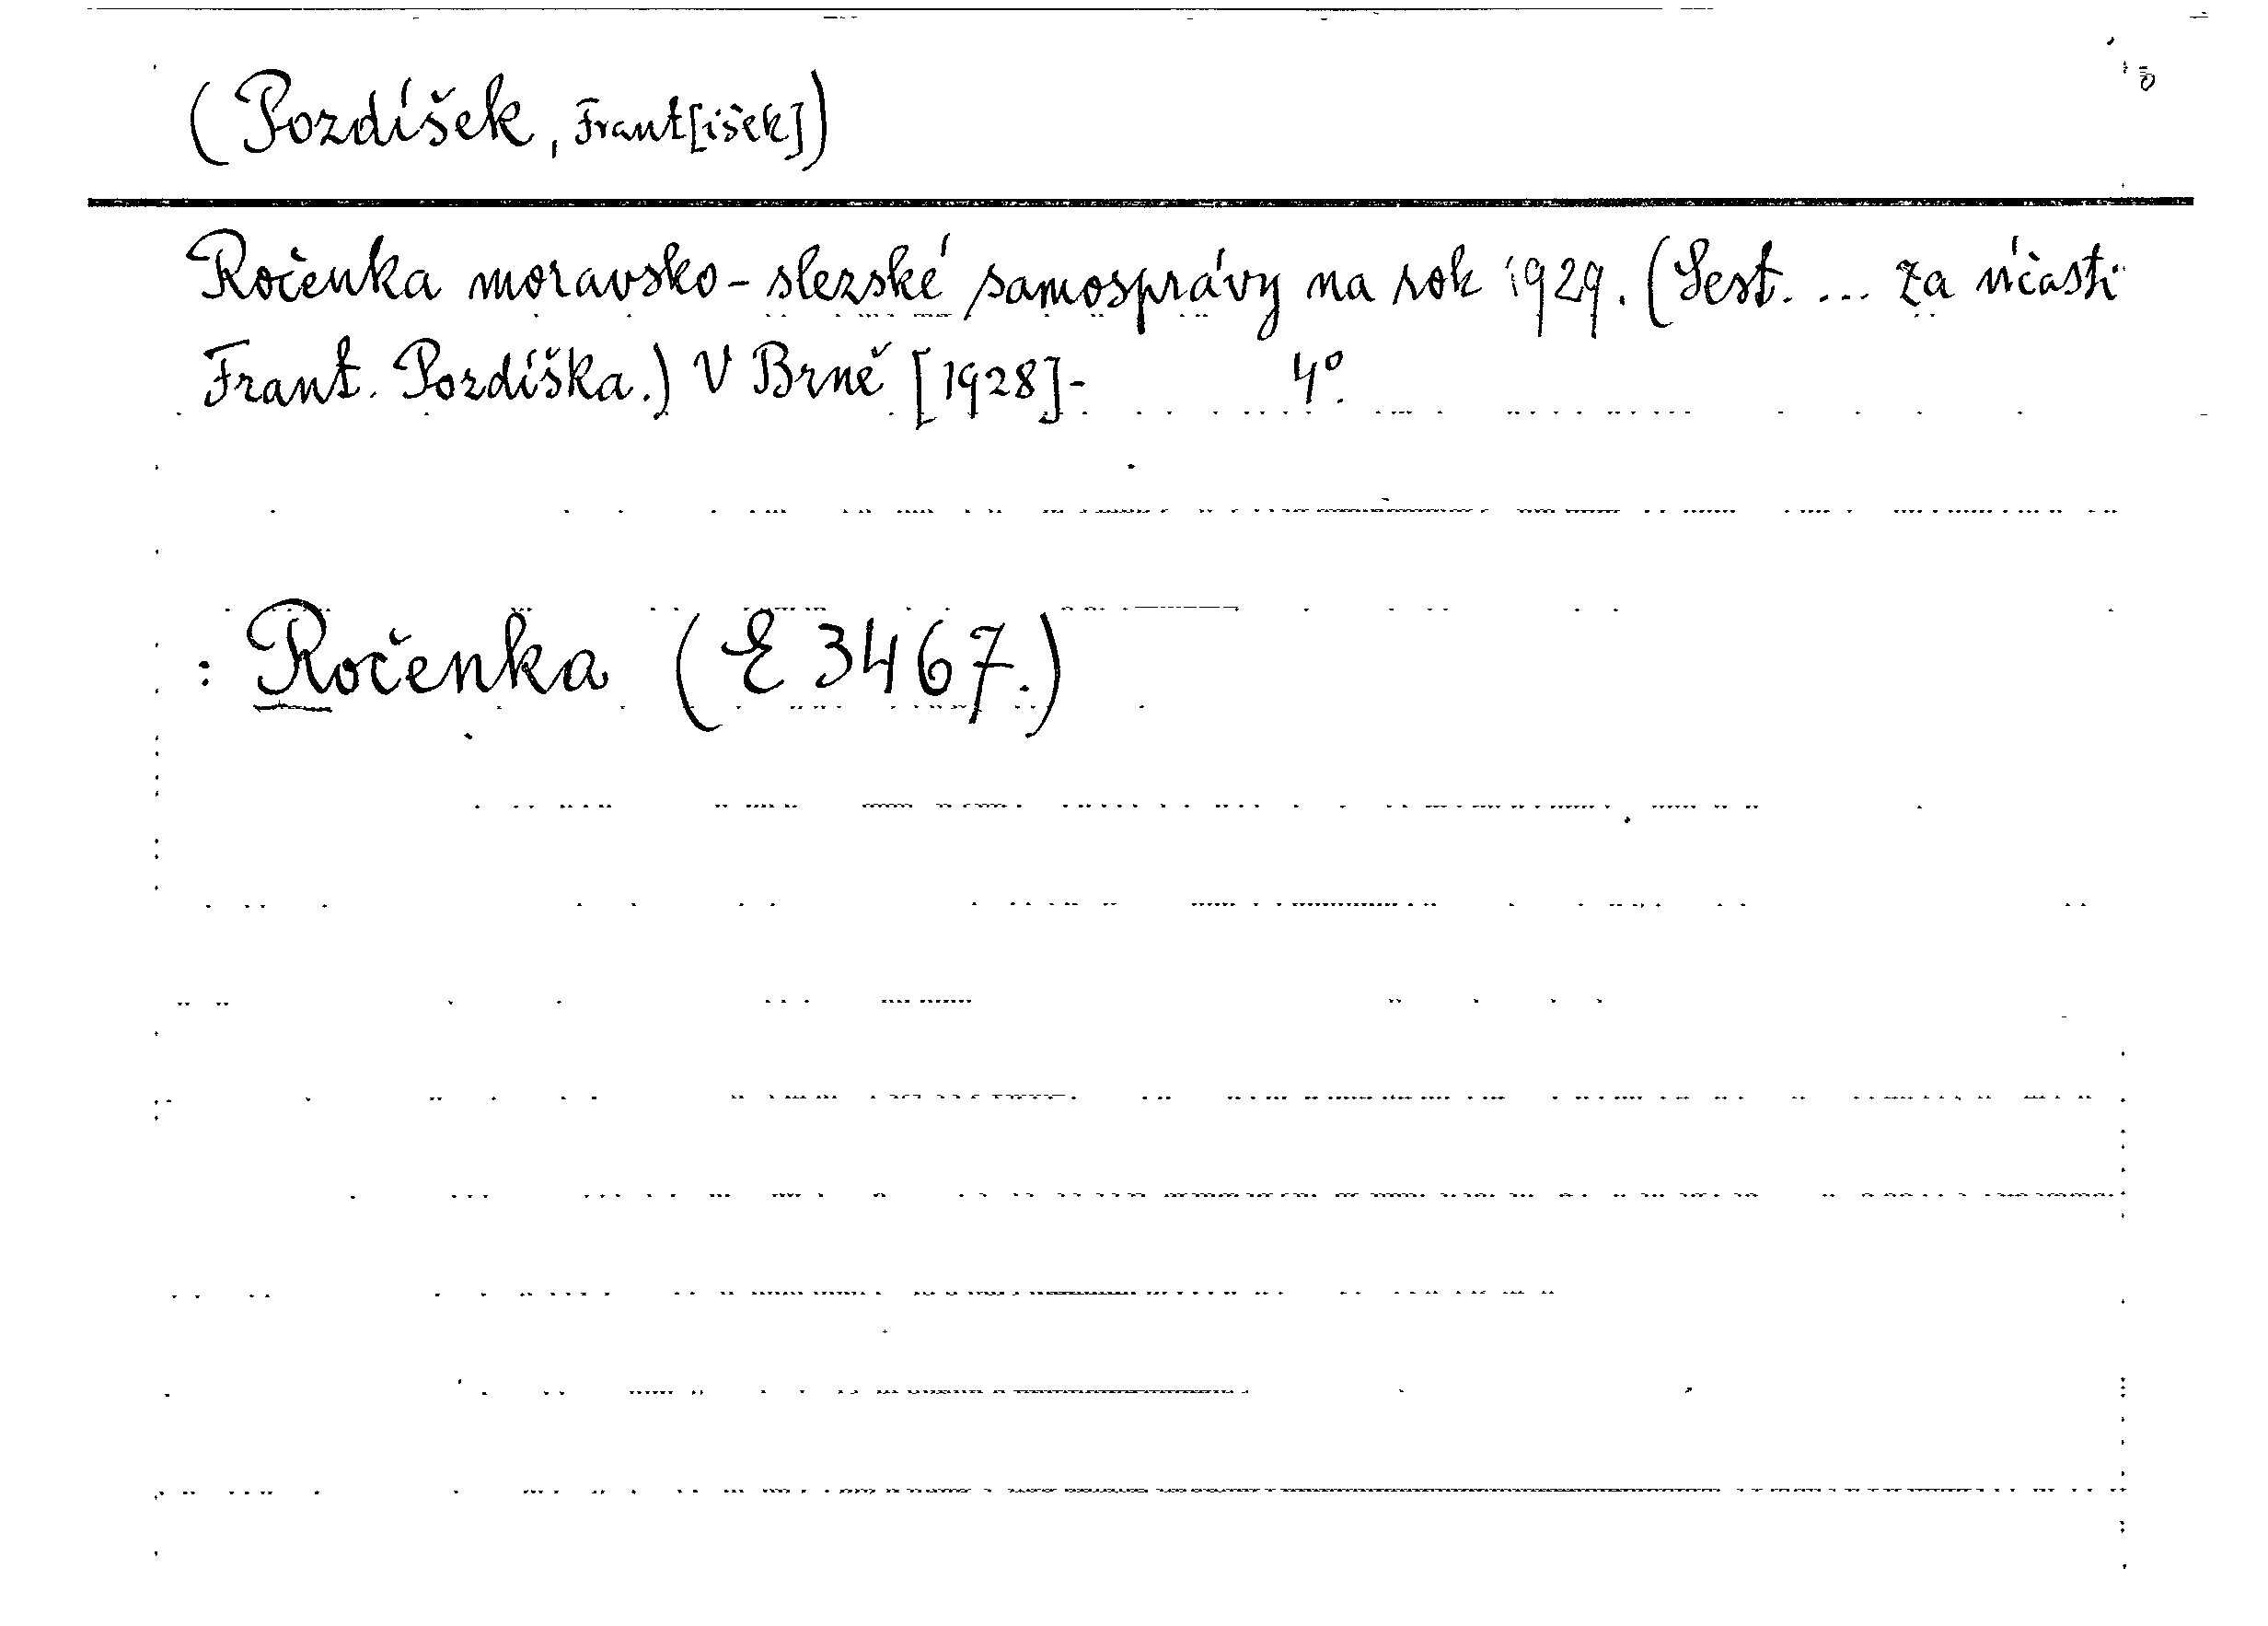 (Pozdíšek, Frant[išek])
Ročenka moravsko-slezské samosprávy na rok 1929. (Sest. ... za účasti
Frant. Pozdíška.) V Brně [1928]- 4°.
: Ročenka (E 3467.)